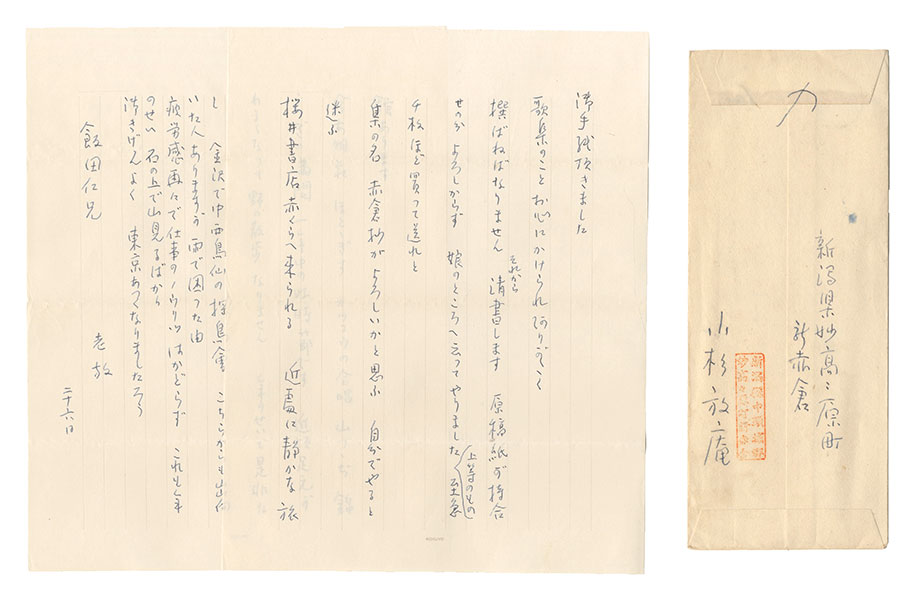 御手紙頂きました
歌集のこと お心にかけられ ありがたく
撰ばねばなりません それから 清書します 原稿紙が持合
せのが よろしからず 娘のところへ云ってやりました 上等のもの 至急
千枚ほど買って送れと
集の名 赤倉抄がよろしいかと思ふ 自分でやると
迷ふ
桜井書店赤くらへ来られる 近處に静かな旅
し 金沢で中西悟仙の探鳥會 こちらからも出向
いた人ありますが 雨で困つた由
疲労感再々で仕事のノウリツはかどらず これも年
のせい 石の上で山見るばかり
御きげんよく 東京あつくなりましたろう
老放
二十六日
飯田仁兄
力
新潟県妙高々原町
新赤倉
小杉放庵